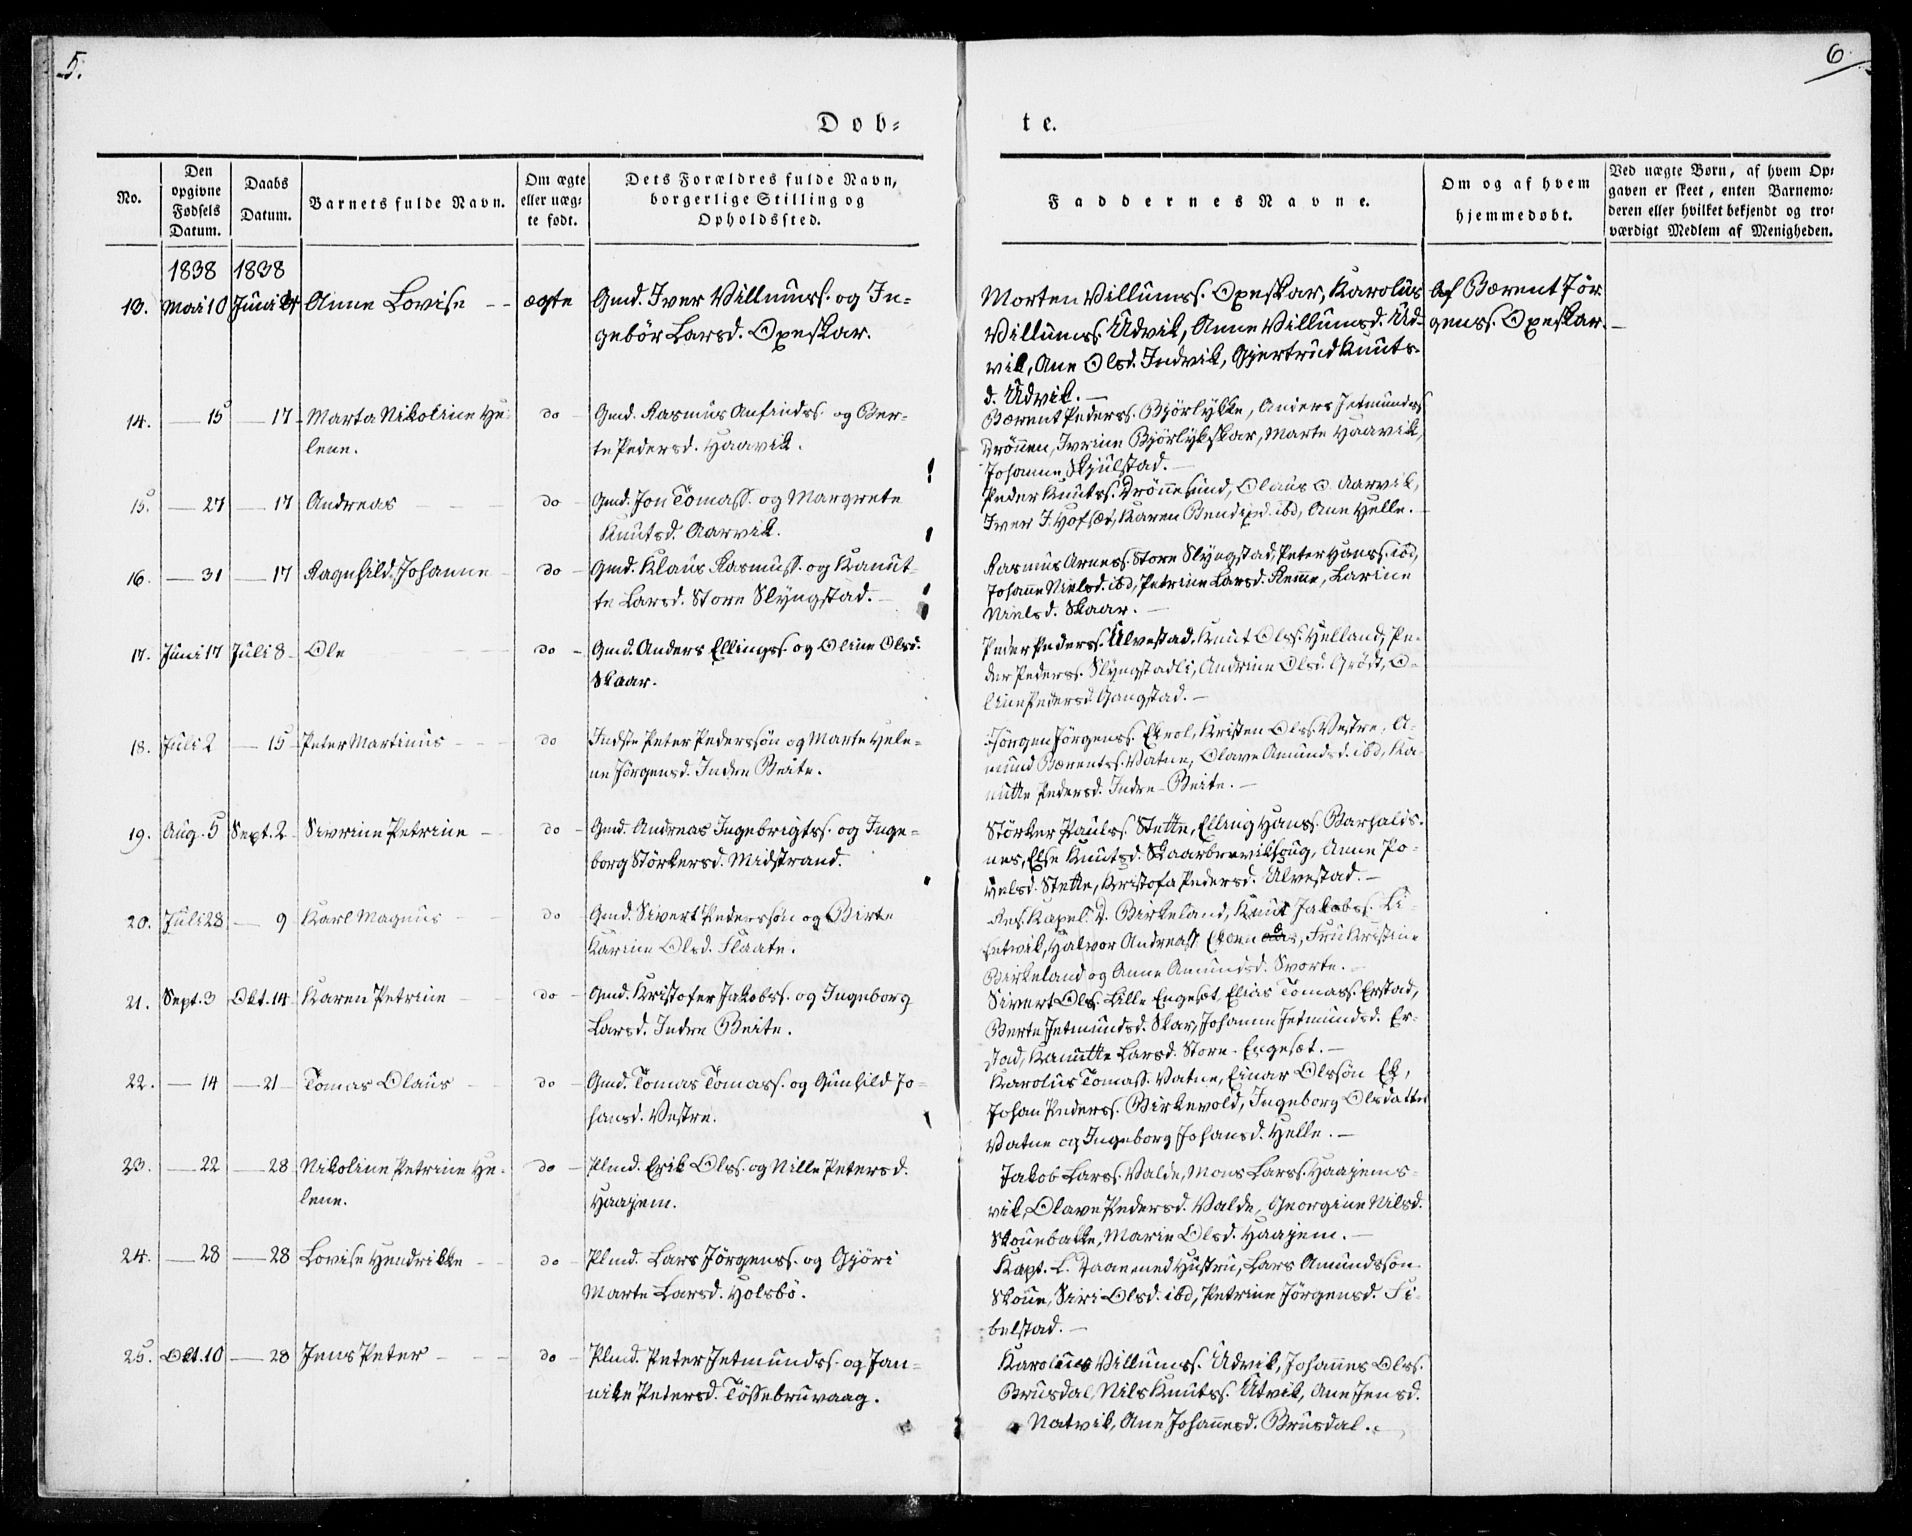 5.
6
Dob=
te.
No.
Den
opgivne
Fødsels
Datum.
Daabs
Datum.
Barnets fulde Navn.
Om ægte
eller uæg-
te født.
Dets Forældres fulde Navn,
borgerlige Stilling og
Opholdssted.
Faddernes Navne.
Om og af hvem
hjemmedøbt.
Ved uægte Børn, af hvem Op-
gaven er skeet, enten Barnemo-
deren eller hvilket bekjendt og tro-
værdigt Medlem af Menigheden.
1838 1838
13. Mai 10 Juni Anne Lovise - - ægte Gmd. Iver Villumss. og In-
gebör Larsd. Opeskar.
Morten Villumss. Opeskar, Karolus
Villumss. Udvik, Anne Villumsd. Ud-
vik, Ane Olsd. Indvik, Gjertrud Knuts-
d. Udvik. —
Af Bærent Jør
genss. Opeskar. —
14. — 15 — 17 Marta Nikoline He-
lene. do Gmd. Rasmus Anfindss. og Ber-
te Pedersd. Haavik.
Bærent Pederss. Bjørlykke, Anders Jetmunds
Drønnen, Ivrine Bjørlykskar, Marte Haavik,
Johanne Skjulstad. —
15. — 27 — 17 Andreas do Gmd. Jon Tomass. og Margrete
Knutsd. Aarvik.
Peder Knutss. Drønnesund, Olaus O. Aarvik,
Iver J. Hofsæt, Karen Bendixd. ibd, Ane Helle. —
16. — 31 — 17 Ragnhild Johanne do Gmd. Klaus Rasmuss. og Kanut-
te Larsd. Store Slyngstad. —
Rasmus Arness. Store Slyngstad, Peter Hanss. ibd,
Johanne Nielsd. ibd, Petrine Larsd. Remme, Larine
Nielsd. Skaar. —
17. Juni 17 Juli 8 Ole do Gmd. Anders Ellingss. og Oline Olsd.
Skaar.
Peder Pederss. Ulvestad, Knut Olss. Helland, Pe-
der Pederss. Slyngstadli, Andrine Olsd. Grødt, O-
line Pedersd. Gangstad. —
18. Juli 2 — 15 Peter Martinus do Indste Peter Pederssøn og Marte Hele-
ne Jørgensd. Indre Beite.
Jørgen Jørgenss. Eknol, Kristen Olss. Vestre, A-
mund Bærentss. Vatne, Olave Amundsd. ibd, Ka-
nutte Pedersd. Indre Beite. —
19. Aug. 5 Sept. 2 Sivrine Petrine do Gmd. Andreas Ingebrigtss. og Inge-
borg Störkersd. Midstrand.
Störker Paulss. Stette, Elling Hanss. Barhalds-
nes, Else Knutsd. Skaarbrevikhoug, Anne Po-
velsd. Stette, Kristofa Pedersd. Ulvestad. —
20. Juli 28 — 9 Karl Magnus do Gmd. Sivert Pederssøn og Birte
Karine Olsd. Flaate.
Res. Kapel. D. Birkeland, Knut Jakobss. Li-
Halvor Andreass. Fru Kristine
Birkeland og Anne Amundsd. Svorte. —
21. Sept. 3 Okt. 14 Karen Petrine do Gmd. Kristofer Jakobss. og Ingeborg
Larsd. Indre Beite.
Sivert Olss. Lille Engeset, Elias Tomass. Erstad,
Berte Jetmundsd. Skar, Johanne Jetmundsd. Er-
stad, Kanutte Larsd. Store Engeset. —
22. — 14 — 21 Tomas Olaus do Gmd. Tomas Tomass. og Gunhild Jo-
hansd. Vestre.
Karolus Tomass. Vatne, Einar Olssøn Ek,
Johan Pederss. Birkevold, Ingeborg Olsdatter
Vatne og Ingeborg Johansd. Helle. —
23. — 22 — 28 Nikoline Petrine He-
lene. do Plmd. Erik Olss. og Nille Petersd.
Haajem.
Jakob Larss. Valde, Mons Larss. Haajems-
vik, Olave Pedersd. Valde, Georgine Nilsd.
Skouebakke, Marie Olsd. Haajem. —
24. — 28 — 28 Lovise Hendrikke do Plmd. Lars Jørgenss. og Gjöri
Marte Larsd. Holsbö.
Kapt. L. Daae med Hustru, Lars Amundssøn
Skoue, Siri Olsd. ibd, Petrine Jørgensd. Fi-
belstad. —
25. Okt. 10 — 28 Jens Peter do Plmd. Peter Jetmundss. og Jan-
nike Petersd. Tössebruvaag.
Karolius Villumss. Udvik, Johannes Olss.
Brusdal, Nils Knutss. Utvik, Ane Jensd.
Natvik, Ane Johannesd. Brusdal.